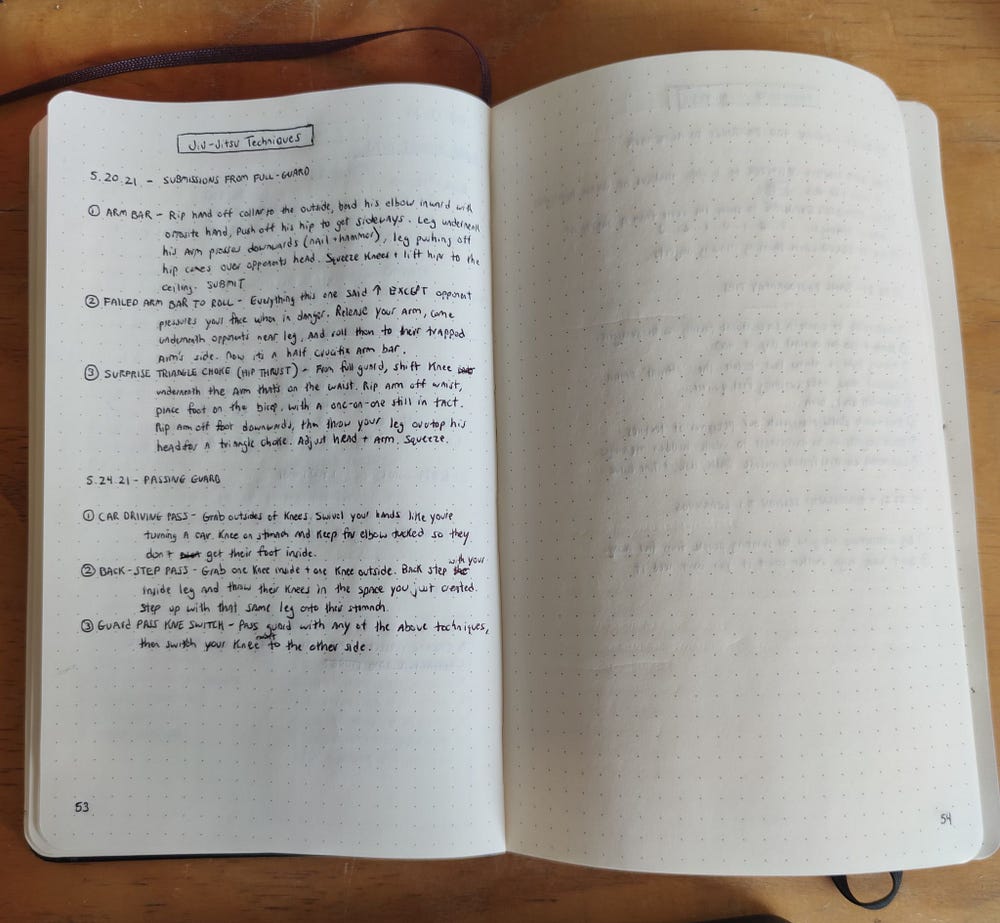 Jiu-Jitsu Techniques
5.20.21 - SUBMISSIONS FROM FULL-GUARD
① ARM BAR - Rip hand off collar to the outside, bend his elbow inward with
opposite hand, push off his hip to get sideways. Leg underneath
his arm presses downwards (nail + hammer), leg pushing off
hip comes over opponents head. Squeeze knees + lift hips to the
ceiling. SUBMIT
② FAILED ARM BAR TO ROLL - Everything this one said ↑ EXCEPT opponent
pressures your face when in danger. Release your arm, come
underneath opponents near leg, and roll them to their trapped
arm's side. Now its a half crucifix arm bar.
③ SURPRISE TRIANGLE CHOKE (HIP THRUST) - From full guard, shift knee
underneath the arm thats on the waist. Rip arm off waist,
place foot on the bicep, with a one-on-one still in tact.
Rip arm off foot downwards, then throw your leg overtop his
head for a triangle choke. Adjust head + arm. Squeeze.
5.24.21 - PASSING GUARD
① CAR DRIVING PASS - Grab outsides of knees. Swivel your hands like you're
turning a car. Knee on stomach and keep far elbow tucked so they
don't get their foot inside.
② BACK-STEP PASS - Grab one knee inside + one knee outside. Back step with your
inside leg and throw their knees in the space you just created.
Step up with that same leg onto their stomach.
③ GUARD PASS KNE SWITCH - Pass guard with any of the above techniques,
then switch your knee to the other side.
53
54